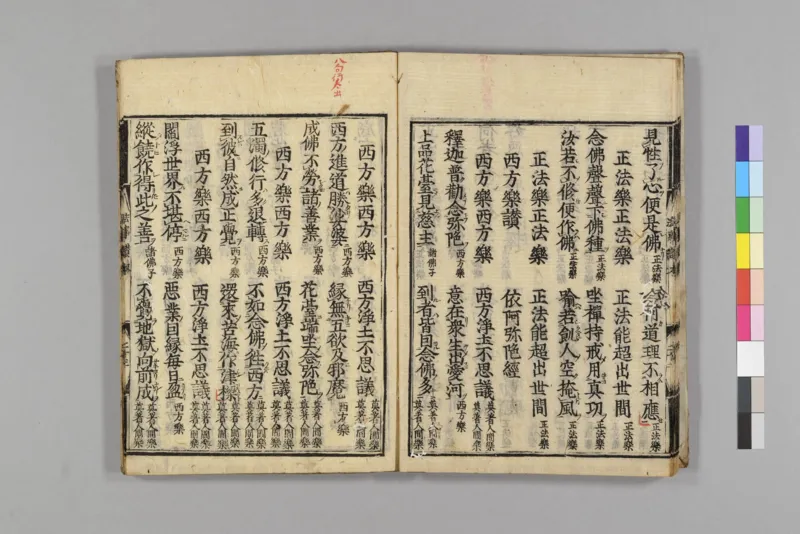 見性了心便是佛正法樂 道理不相應正法樂
正法樂正法樂 正法能超出世間正法樂
念佛聲聲下佛種正法樂 坐禪持戒用真功正法樂
汝若不修便作佛正法樂 喻若劍人空掩風正法樂
正法樂正法樂 正法能超出世間正法樂
西方樂讃 依阿弥陁經
西方樂西方樂 西方淨土不思議莫著人間樂
釋迦普勸念弥陁西方樂 意在衆生出愛河西方樂
上品花臺見慈主諸佛子 到者皆因念佛多莫著人間樂
西方樂西方樂 西方淨土不思議莫著人間樂
西方進道勝娑婆西方樂 縁無五欲及邪魔西方樂
成佛不勞諸善業西方樂 花臺端坐念弥陁莫著人間樂
西方樂西方樂 西方淨土不思議莫著人間樂
五濁修行多退轉西方樂 不如念佛往西方莫著人間樂
到彼自然成正覺西方樂 還來苦海作津梁莫著人間樂
西方樂西方樂 西方淨土不思議莫著人間樂
閻浮世界不堪停 惡業因縁每日盈西方樂
縱饒作得此之善諸佛子 不覺地獄向前成莫著人間樂